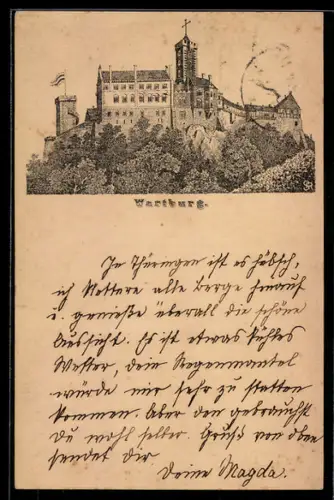 Wartburg.
In Thüringen ist es hübsch,
ich klettere alle Berge hinauf
u. genieße überall die schöne
Aussicht. Es ist etwas kühles
Wetter, dein Regenmantel
würde mir sehr zu statten
kommen. Aber den gebrauchst
Du wohl selber. Gruß von oben
sendet Dir
Deine Magda.